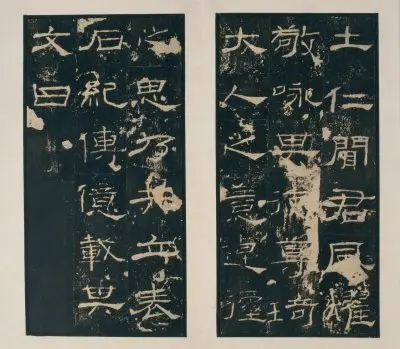 土仁聞君風燿
敬咏其德尊琦
大人之意逴彌
之思乃共立表
石紀傳億載其
文曰